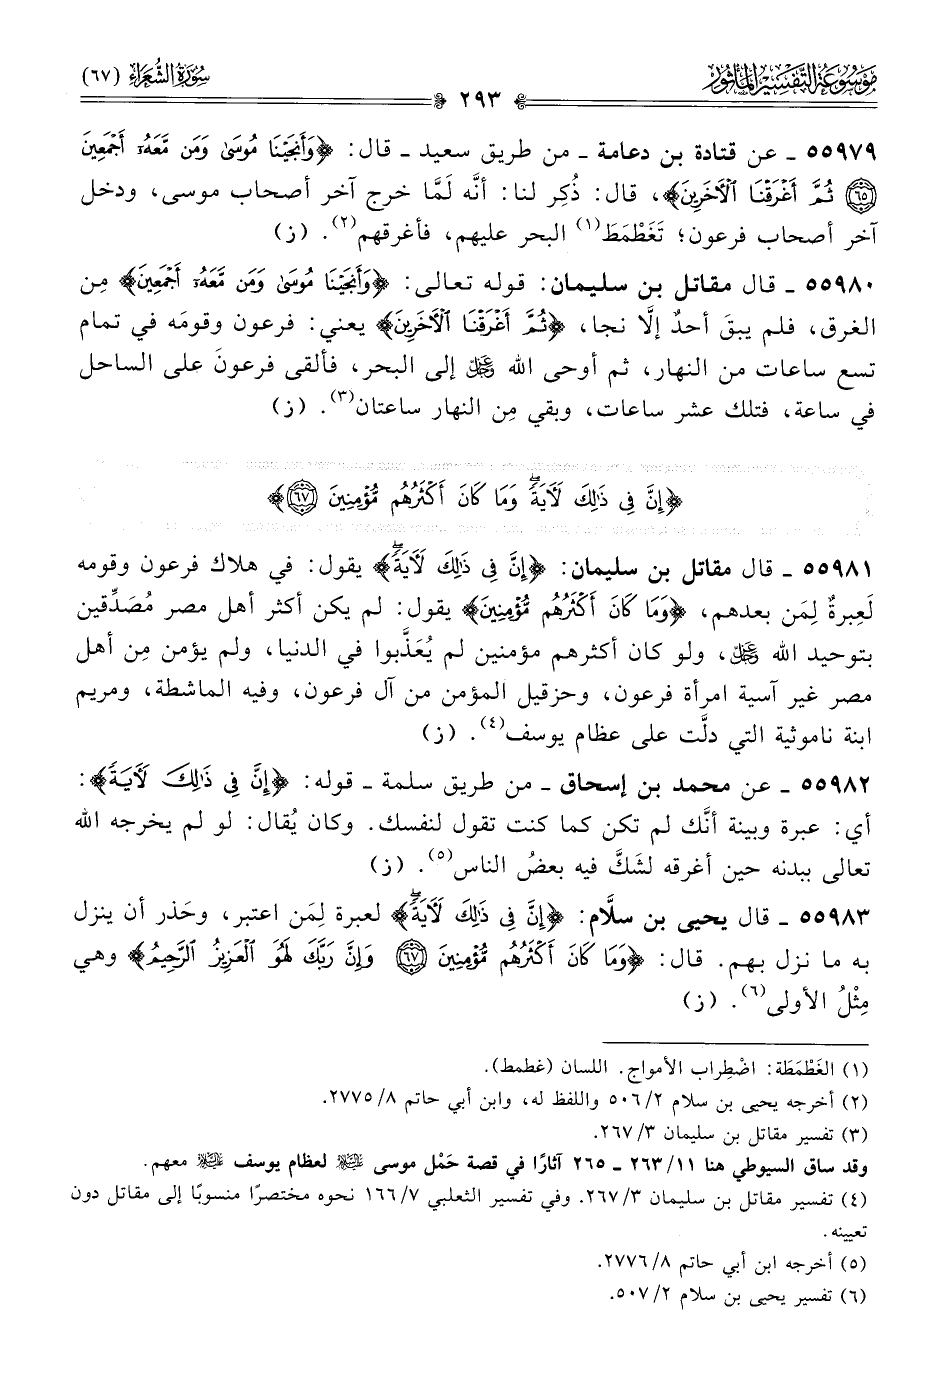 مَوْسُوعَة التَّفْسِيْر المَأْثُور
سُورَةُ الشُّعَرَاء (٦٧)
٢٩٣
٥٥٩٧٩ ـ عن قتادة بن دعامة ـ من طريق سعيد ـ قال: ﴿وَأَنجَيْنَا مُوسَىٰ وَمَن مَّعَهُۥٓ أَجْمَعِينَ
(٦٥) ثُمَّ أَغْرَقْنَا ٱلْأَخَرِينَ﴾، قال: ذُكِر لنا: أنَّه لَمَّا خرج آخر أصحاب موسى، ودخل
آخر أصحاب فرعون؛ تَغَطْمَطَ(١) البحر عليهم، فأغرقهم(٢). (ز)
٥٥٩٨٠ ـ قال مقاتل بن سليمان: قوله تعالى: ﴿وَأَنجَيْنَا مُوسَىٰ وَمَن مَّعَهُۥٓ أَجْمَعِينَ﴾ مِن
الغرق، فلم يبقَ أحدٌ إلَّا نجا، ﴿ثُمَّ أَغْرَقْنَا ٱلْأَخَرِينَ﴾ يعني: فرعون وقومَه في تمام
تسع ساعات من النهار، ثم أوحى الله ﷿ إلى البحر، فألقى فرعونَ على الساحل
في ساعة، فتلك عشر ساعات، وبقي مِن النهار ساعتان(٣). (ز)
﴿إِنَّ فِى ذَٰلِكَ لَأٓيَةًۖ وَمَا كَانَ أَكْثَرُهُم مُّؤْمِنِينَ (٦٧)﴾
٥٥٩٨١ ـ قال مقاتل بن سليمان: ﴿إِنَّ فِى ذَٰلِكَ لَأٓيَةًۖ﴾ يقول: في هلاك فرعون وقومه
لَعِبرةٌ لِمَن بعدهم، ﴿وَمَا كَانَ أَكْثَرُهُم مُّؤْمِنِينَ﴾ يقول: لم يكن أكثر أهل مصر مُصَدِّقين
بتوحيد الله ﷿، ولو كان أكثرهم مؤمنين لم يُعَذَّبوا في الدنيا، ولم يؤمن مِن أهل
مصر غير آسية امرأة فرعون، وحزقيل المؤمن من آل فرعون، وفيه الماشطة، ومريم
ابنة ناموثية التي دلَّت على عظام يوسف(٤). (ز)
٥٥٩٨٢ ـ عن محمد بن إسحاق ـ من طريق سلمة ـ قوله: ﴿إِنَّ فِى ذَٰلِكَ لَأٓيَةً﴾:
أي: عبرة وبينة أنَّك لم تكن كما كنت تقول لنفسك. وكان يُقال: لو لم يخرجه الله
تعالى ببدنه حين أغرقه لشَكَّ فيه بعضُ الناس(٥). (ز)
٥٥٩٨٣ ـ قال يحيى بن سلَّام: ﴿إِنَّ فِى ذَٰلِكَ لَأٓيَةًۖ﴾ لعبرة لِمَن اعتبر، وحَذر أن ينزل
به ما نزل بهم. قال: ﴿وَمَا كَانَ أَكْثَرُهُم مُّؤْمِنِينَ (٦٧) وَإِنَّ رَبَّكَ لَهُوَ ٱلْعَزِيزُ ٱلرَّحِيمُ﴾ وهي
مِثْلُ الأولى(٦). (ز)
(١) الغَطْمَطَة: اضْطِراب الأمواج. اللسان (غطمط).
(٢) أخرجه يحيى بن سلام ٢/ ٥٠٦ واللفظ له، وابن أبي حاتم ٨/ ٢٧٧٥.
(٣) تفسير مقاتل بن سليمان ٣/ ٢٦٧.
وقد ساق السيوطي هنا ١١/ ٢٦٣ ـ ٢٦٥ آثارًا في قصة حَمْل موسى ﵇ لعظام يوسف ﵇ معهم.
(٤) تفسير مقاتل بن سليمان ٣/ ٢٦٧. وفي تفسير الثعلبي ٧/ ١٦٦ نحوه مختصرًا منسوبًا إلى مقاتل دون
تعيينه.
(٥) أخرجه ابن أبي حاتم ٨/ ٢٧٧٦.
(٦) تفسير يحيى بن سلام ٢/ ٥٠٧.